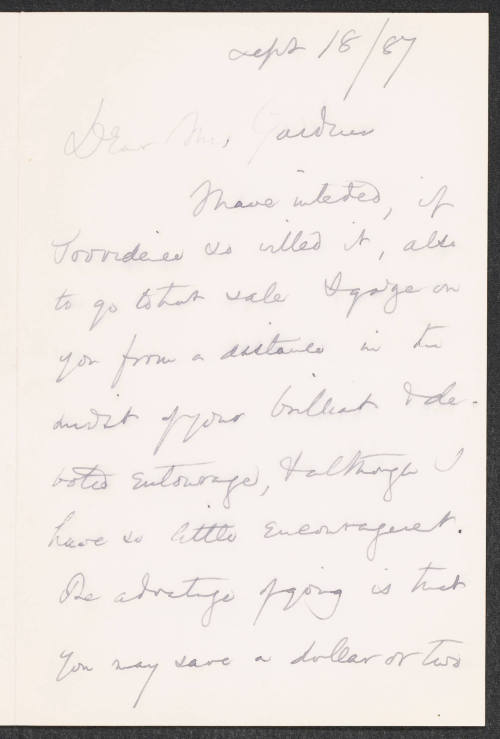 Sept 18/87
Dear Mrs. Gardner
I have intended, if
Providence so willed it, also
to go to that sale & gaze on
you from a distance in the
midst of your brilliant & de-
voted entourage, & although I
have so little encouragement.
The advantage of going is that
you may save a dollar or two